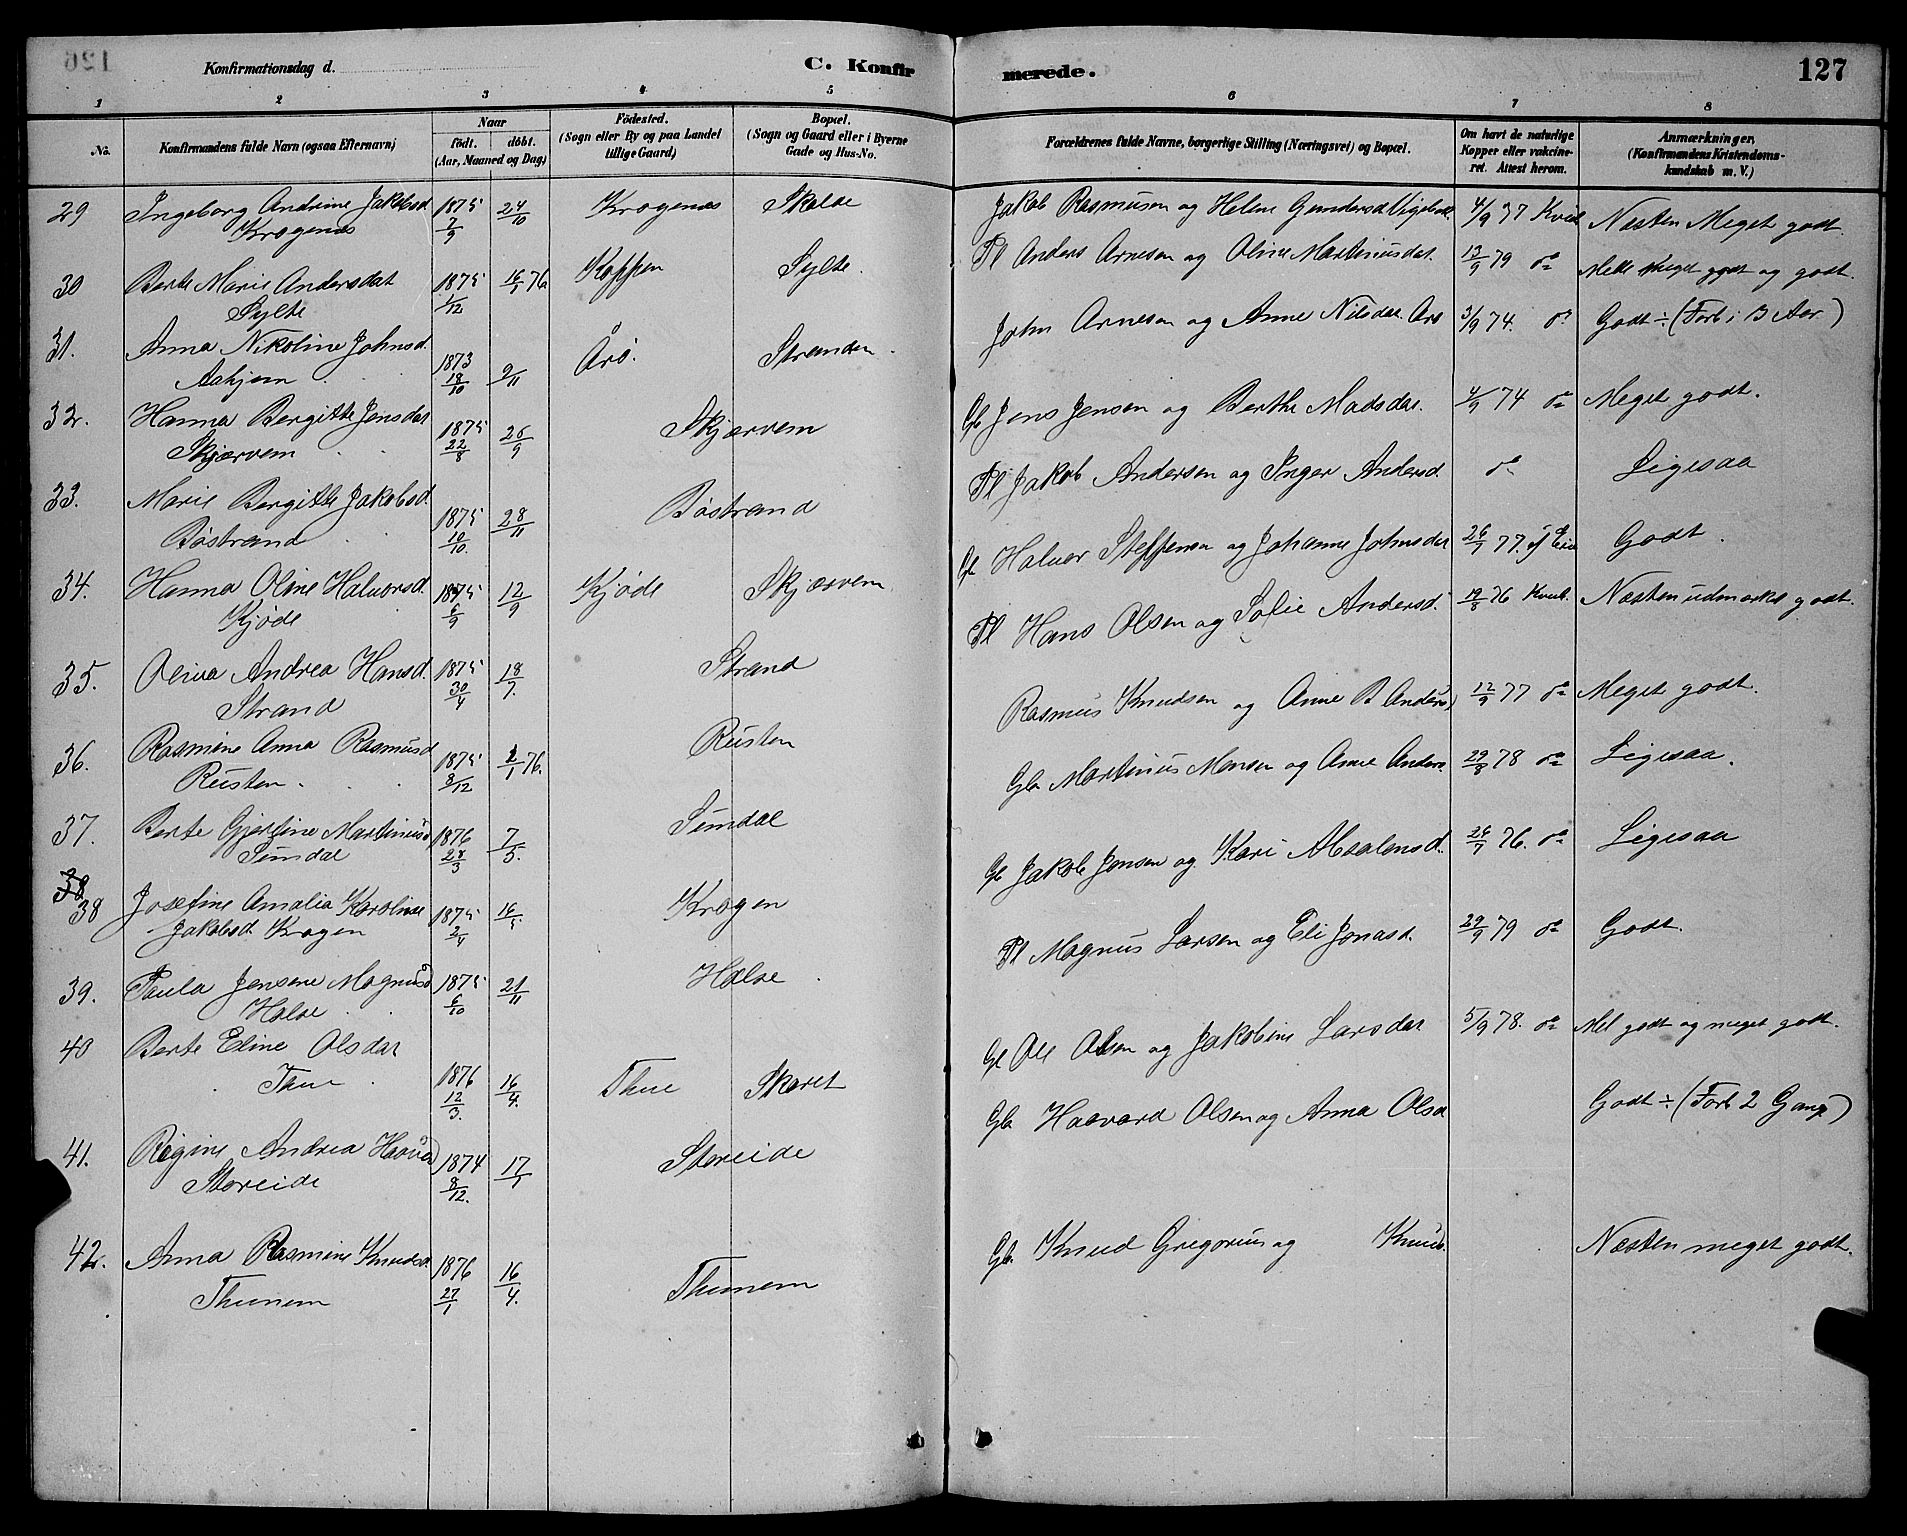 126
Konfirmationsdag d.
C. Konfirmerede.
127
1 2 3 4 5 6 7 8
No.
Konfirmandens fulde Navn (ogsaa Efternavn)
Naar
födt. döbt.
(Aar, Maaned og Dag)
Födested.
(Sogn eller By og paa Landet
tillige Gaard)
Bopæl.
(Sogn og Gaard eller i Byerne
Gade og Hus-No.
Forældrenes fulde Navne, borgerlige Stilling (Næringsvei) og Bopæl.
Om havt de naturlige
Kopper eller vakcine-
ret. Attest herom.
Anmærkninger,
(Konfirmandens Kristendoms-
kundskab m. V.)
29 Ingeborg Andrine Jakobsd 1875 24/10 Krogenæs Skolde Jakob Rasmusen og Heline Gundersd. 4/9 37 Næsten Meget godt.
Krogenæs 7/9
30 Berte Marie Andersdat 1875 16/1 76 Koppen Sylte. Pl Anders Arnesen og Oline Martinusdat. 13/9 79 do Melle Meget godt og godt.
Sylte 1/12
31. Anna Nikoline Johnsd. 1873 2/11 Årö. Stranden. John Arnesen og Anne Nilsdat. Arö 3/9 74. do Godt ÷ (Forb i 3 Aar)
Aahjem 19/10
32. Hanna Bergitte Jensdat 1875 26/9 Skjærvem Gb Jens Jensen og Berthe Madsdat. 4/9 74 do Meget godt.
Skjærvem 22/8
33. Marie Bergitte Jakobsd. 1875 28/11 Böstrand Pl Jakob Andersen og Inger Andersd. do Ligesaa
Böstrand 10/10.
34. Hanna Oline Halvorsd. 1875 12/9 Kjöde Skjærvem Gb Halvor Steffensen og Johanne Johnsdat 26/7 77. Godt.
Kjöde 6/9
35. Oliva Andrea Hansd. 1875 18/7. Strand Pl Hans Olsen og Sofie Andersd. 19/8 76 Næsten udmærket godt.
Strand 30/4
36. Rasmine Anna Rasmusd 1875 2/1 76. Rusten Rasmus Knudsen og Anne B Anders) 12/9 77 do Meget godt.
Rusten. 8/12
37. Berte Gjertine Martinusd 1876 7/5. Sundal Gb Martinus Monsen og Anne Anders. 29/8 78 do Ligesaa.
Sundal 28/3
38
38 Josefine Amalia Karoline 1875 16/5 Krogen Gb Jakob Jensen og Kari Absalonsd. 26/7 76. do Ligesaa
Jakobsd. Krogen 2/4
39. Paula Jensene Magnusd 1875 21/11 Halse. Pl Magnus Larsen og Eli Jonasd. 29/9 79 do Godt.
Halse. 6/10
40 Berte Eline Olsdat 1876 16/4. Thue Skaret Gb Ole Olsen og Jakobine Larsdat 5/9 78. do Mel godt og meget godt.
Thue 12/3.
41. Regine Andrea Haavar) 1874 17/1 Storeide Gb Haavard Olsen og Anna Olsd Godt ÷ (Forb 2 Gang)
Storeide 8/12.
42. Anna Rasmine Knudsd. 1876 16/4. Thunem Gb. Knud Gregorius og Knuds. Næsten meget godt.
Thunem 27/1